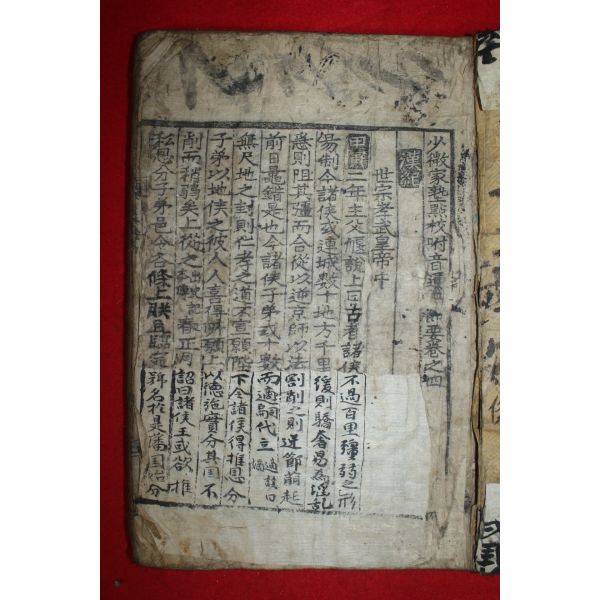 少微家塾點校附音通鑑節要卷之四
漢紀
世宗孝武皇帝中
甲寅二年主父偃說上曰古者諸侯不過百里彊弱之形
易制今諸侯或連城數十地方千里緩則驕奢易為淫乱
急則阻其彊而合從以逆京師以法割削之則逆節萌起
前日鼂錯是也今諸侯子弟或十數而適嗣代立適讀曰嫡
無尺地之封則仁孝之道不宣願陛下令諸侯得推恩分
子弟以地侯之彼人人喜得所願上以德施實分其国不
削而稍弱矣上從之春正月詔曰諸侯王或欲推
私恩分子弟邑令各條上朕且臨定号名於是藩国始分